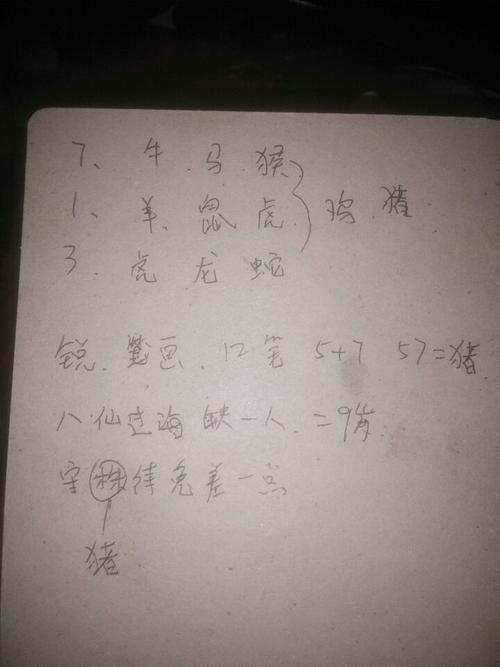 7、牛.马.猴
1、羊、鼠虎.}鸡.猪
3.虎龙蛇
锐.笔画.12笔 5+7 57=猪
八仙过海缺一人.=9岁
守株待兔差一点
猪